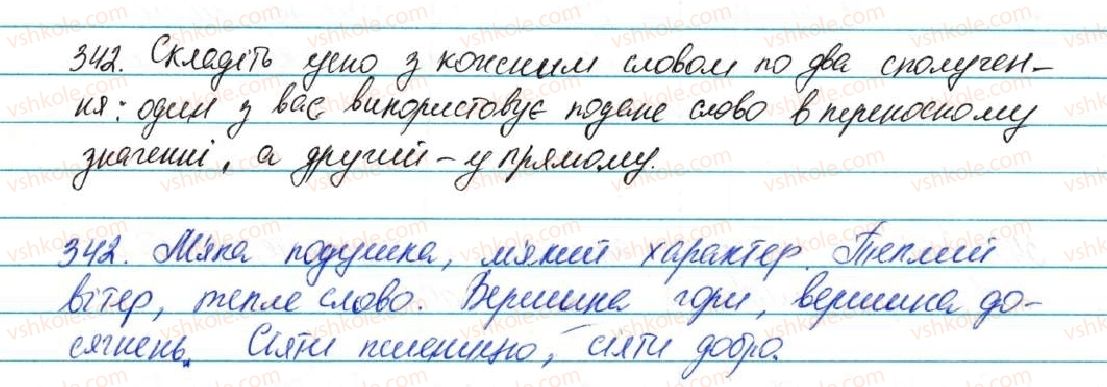 342. Складіть усно з кожним словом по два сполучен-
ня: один з вас використовує подане слово в переносному
значенні, а другий – у прямому.
342. М'яка подушка, м'який характер. Теплий
вітер, тепле слово. Вершина гори, вершина до-
сягнень. Сіяти пшеницю, сіяти добро.